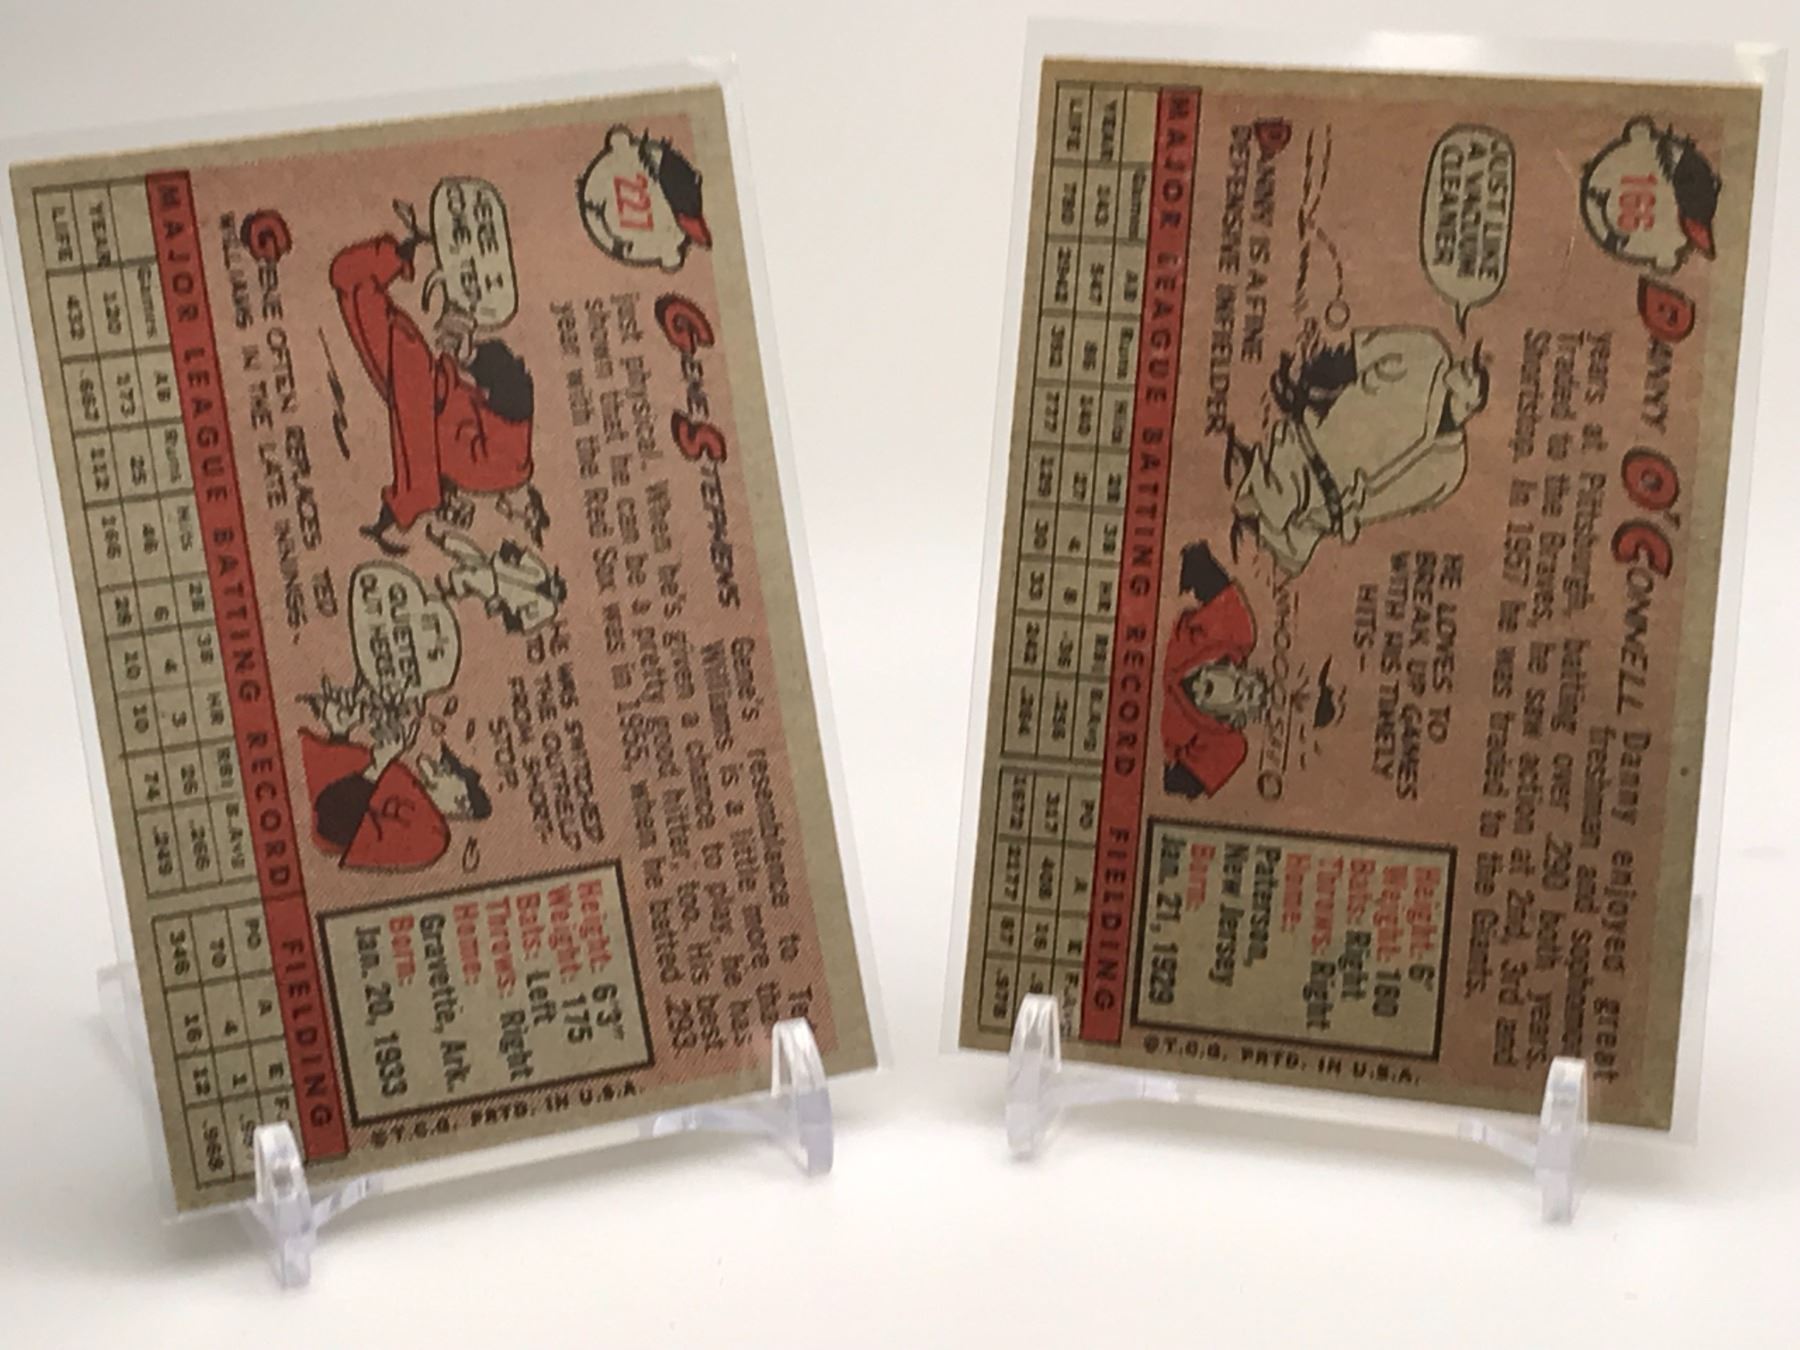 227
GENE STEPHENS
Gene's resemblance to
Williams is a little more
just physical. When he's given a chance to play, he has
shown that he can be a pretty good hitter, too. His best
year with the Red Sox was in 1955, when he batted .293.
HERE I
COME, TED
GENE OFTEN REPLACES TED
WILLIAMS IN THE LATE INNINGS-
HE WAS SWITCHED
TO THE OUTFIELD
FROM SHORT-
STOP.
IT'S
QUIETER
OUT HERE
Height: 6'3"
Weight: 175
Bats: Left
Throws: Right
Home:
Gravette, Ark.
Born:
Jan. 20, 1933
©T.C.G. PRTD. IN U.S.A.
MAJOR LEAGUE BATTING RECORD FIELDING
Games AB Runs Hits 2B 3B HR RBI B.Avg PO A E
YEAR 120 173 25 46 6 4 3 26 .266 70 4 1
LIFE 432 667 112 166 26 10 10 74 .249 346 16 12 .968
166
DANNY O'CONNELL
Danny enjoyed great
freshman and sophomore
years at Pittsburgh, batting over .290 both years.
Traded to the Braves, he saw action at 2nd, 3rd and
Shortstop. In 1957 he was traded to the Giants.
JUST LIKE
A VACUUM
CLEANER
DANNY IS A FINE
DEFENSIVE INFIELDER
HE LOVES TO
BREAK UP GAMES
WITH HIS TIMELY
HITS-
Height: 6'
Weight: 180
Bats: Right
Throws: Right
Home:
Paterson,
New Jersey
Born:
Jan. 21, 1929
©T.C.G. PRTD. IN U.S.A.
MAJOR LEAGUE BATTING RECORD FIELDING
Games AB Runs Hits 2B 3B HR RBI B.Avg PO A E
YEAR 143 547 86 140 27 4 8 36 .256 317 408 16
LIFE 780 2942 392 777 129 30 33 242 .264 1672 2177 87 .978